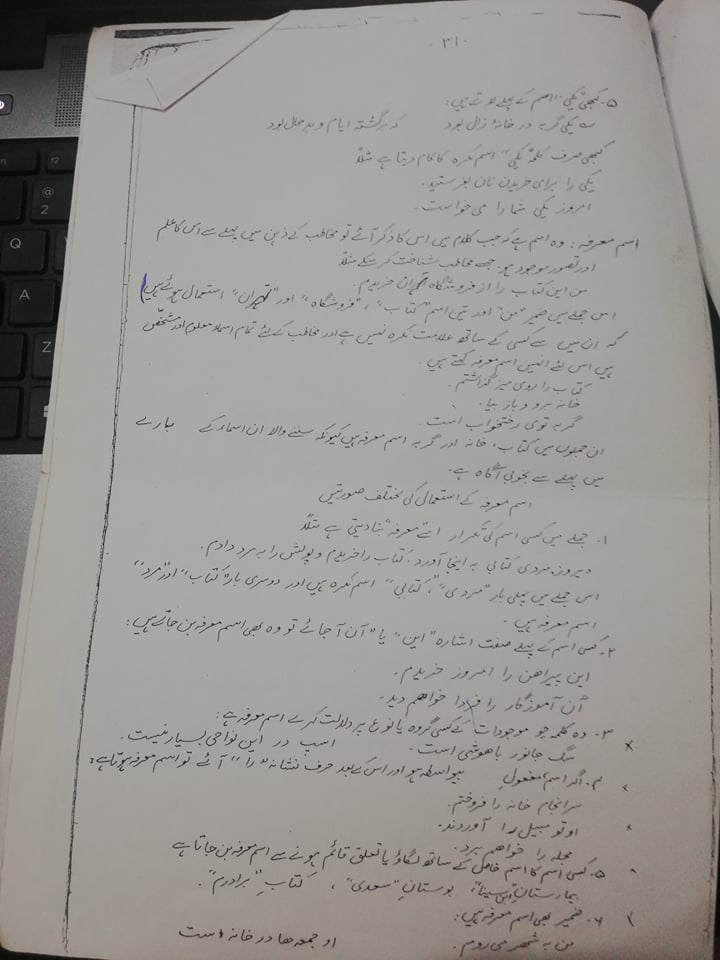 -۳۱۰
۵۔ کبھی "یکی" اسم کے پہلے لاتے ہیں:
ے یکی گربہ در خانۂ زال بود کہ برگشتہ ایام و بدحال بود
کبھی صرف کلمۂ "یکی" اسم نکرہ کا کام دیتا ہے مثلاً
یکی را برای خریدن نان بفرستید۔
امروز یکی شما را می خواست۔
اسم معرفہ: وہ اسم ہے کہ جب کلام میں اس کا ذکر آئے تو مخاطب کے ذہن میں پہلے سے اُس کا علم
اور تصور موجود ہو۔ جسے مخاطب شناخت کر سکے مثلاً
من این کتاب را از فروشگاہ تہران خریدم۔
اس جملے میں ضمیر "من" اور تین اسم "کتاب"، "فروشگاہ" اور "تہران" استعمال ہوئے ہیں
کہ ان میں سے کسی کے ساتھ علامت نکرہ نہیں ہے اور مخاطب کے لئے تمام اسماء معلوم اور مشخّص
ہیں اس لئے انہیں اسم معرفہ کہتے ہیں۔
کتاب را روی میز گذاشتم۔
خانہ برو و باز بیا۔
گربہ توی رختخواب است۔
ان جملوں میں کتاب، خانہ اور گربہ اسم معرفہ ہیں کیونکہ سننے والا ان اسماء کے بارے
میں پہلے سے بخوبی آگاہ ہے۔
اسم معرفہ کے استعمال کی مختلف صورتیں
۱۔ جملے میں کسی اسم کی تکرار اُسے معرفہ بنا دیتی ہے مثلاً
دیروز مردی کتابی بہ اینجا آورد۔ کتاب را خریدم و پولش را بہ مرد دادم۔
اس جملے میں پہلی بار "مردی"، "کتابی" اسم نکرہ ہیں اور دوسری بار "کتاب" اور "مرد"
اسم معرفہ ہیں۔
۲۔ کسی اسم کے پہلے صفت اشارہ "این" یا "آن" آ جائے تو وہ بھی اسم معرفہ بن جاتے ہیں:
این پیراھن را امروز خریدم۔
آن آموزگار را فردا خواھم دید۔
۳۔ وہ کلمہ جو موجودات کے کسی گروہ یا نوع پر دلالت کرے اسم معرفہ ہے:
سگ جانور باھوشی است۔ اسب در این نواحی بسیار نیست۔
۴۔ اگر اسم، مفعولِ بیواسطہ ہو اور اس کے بعد حرف نشانہ "را" آئے تو اسم معرفہ ہوتا ہے:
سرانجام خانہ را فروختم۔
اوتومبیل را آوردند۔
مجلہ را خواھم برد۔
۵۔ کسی اسم کا اسم خاص کے ساتھ لگاؤ یا تعلق قائم ہونے سے اسم معرفہ بن جاتا ہے
بیمارستانِ "ابی سینا"، بوستانِ "سعدی"، کتابِ "برادرم"۔
۶۔ ضمیر بھی اسم معرفہ ہیں:
من بہ شہر می روم۔ او جمعہ ھا در خانہ است